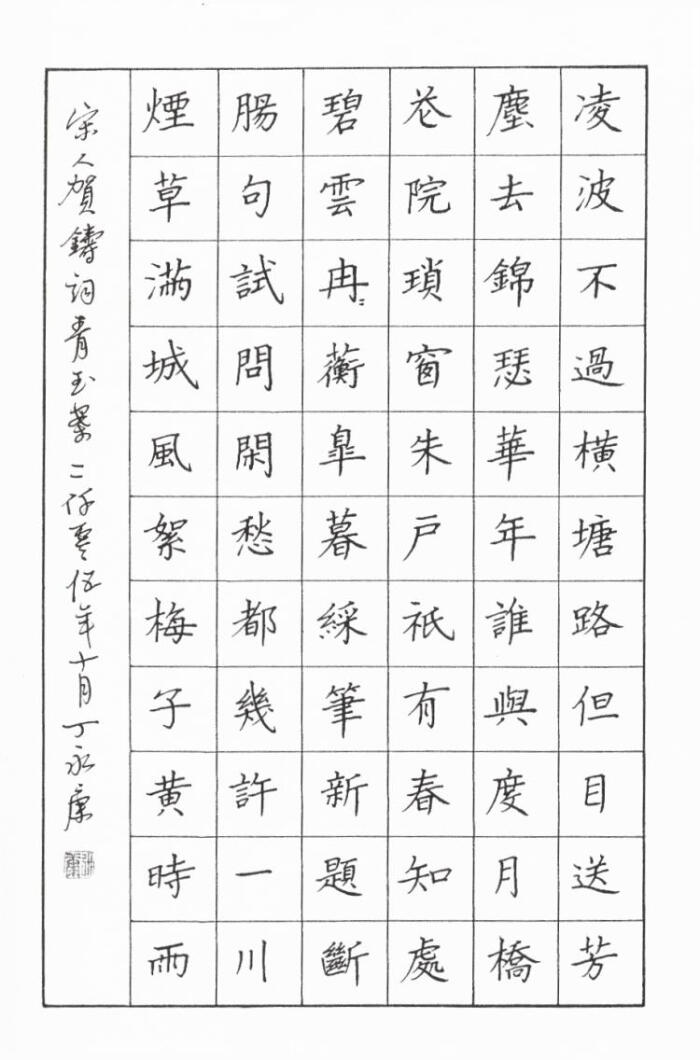 凌波不過橫塘路但目送芳
塵去錦瑟華年誰與度月橋
花院瑣窗朱戶祇有春知處
碧雲冉々蘅皐暮綵筆新題斷
腸句試問閑愁都幾許一川
煙草滿城風絮梅子黃時雨
宋人賀鑄詞青玉案二仟零伍年十月丁永康